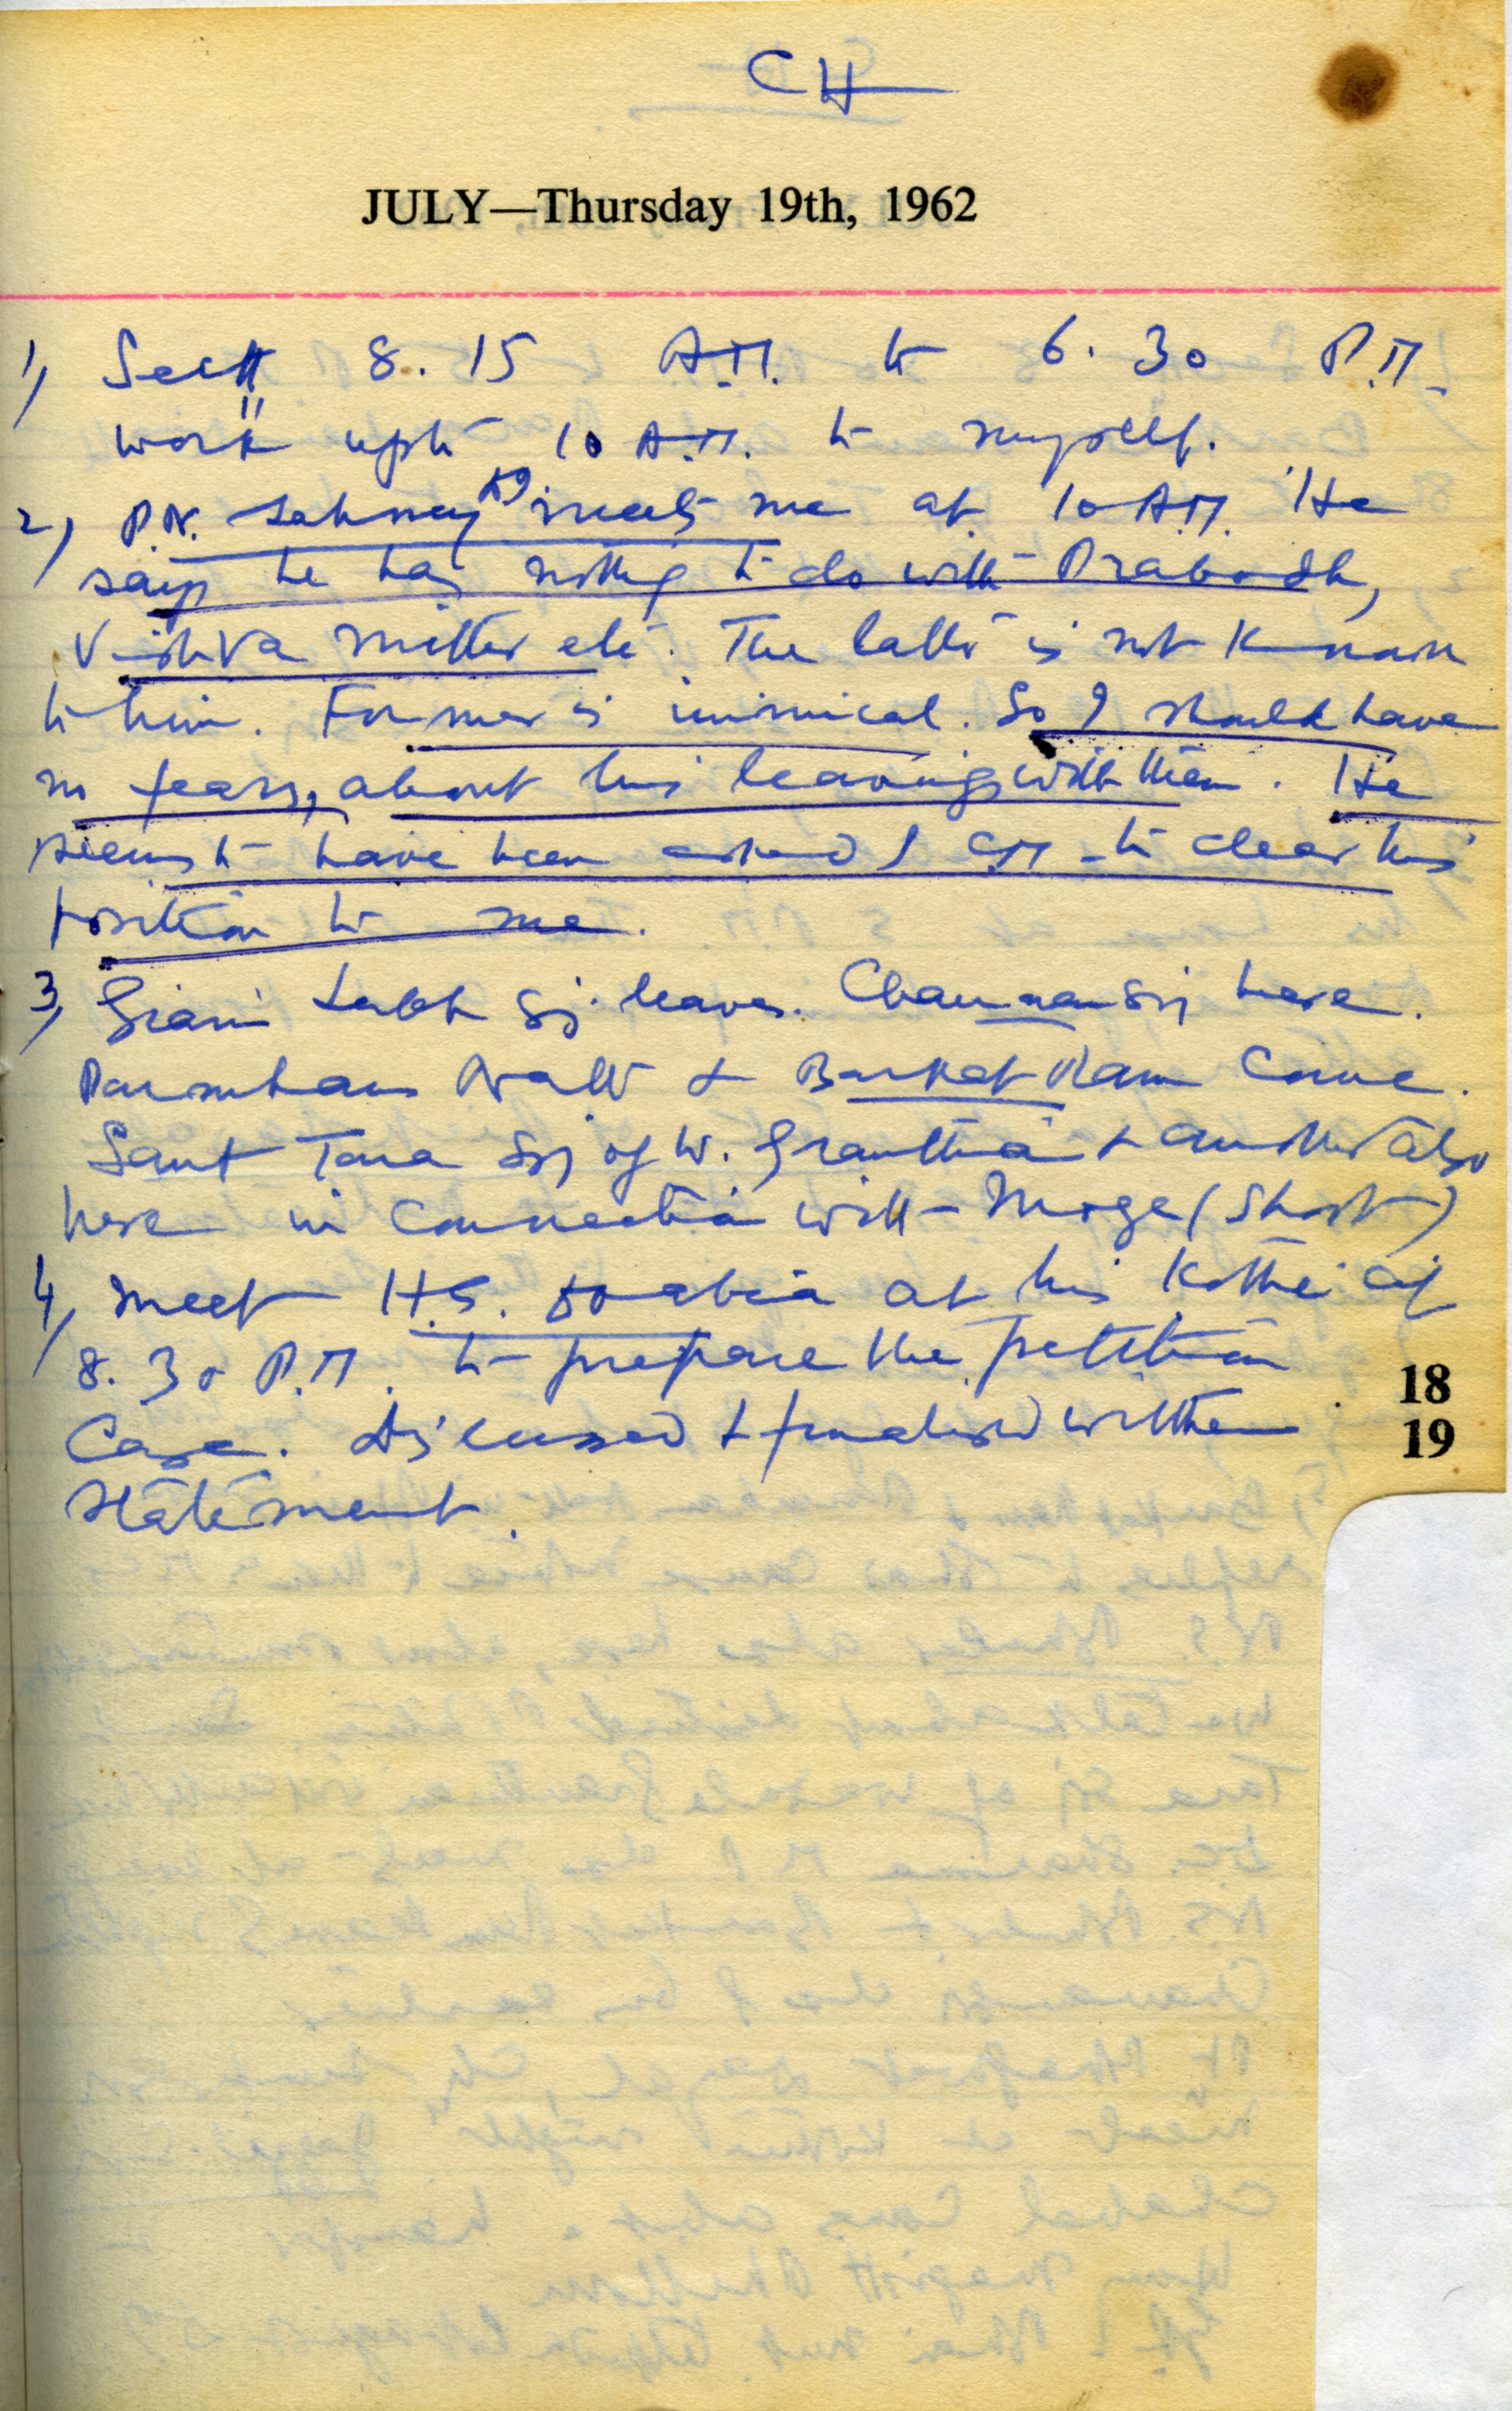 CH
JULY—Thursday 19th, 1962
1) Sectt 8.15 A.M. to 6.30 P.M.
work upto 10 A.M. to myself.
2) P.N. Sahney meets me at 10 A.M. He
says he has nothing to do with Prabodh,
Vishva Mitter etc. The latter is not known
to him. Former is inimical. So I should have
no fears, about his leavings with them. He
seems to have been asked CM to clear his
position to me.
3) Giani Labh Sij leaves. Chananसij here.
Parshan Natt & Barkat Ram come.
Sant Tara Sij of W. Granthia & another also
here in connection with Moge (Short)
4) Meet H.S. Doabia at his Kothi at
8.30 P.M. to prepare the petition
Case. Discussed & finalised written
statement.
18
19